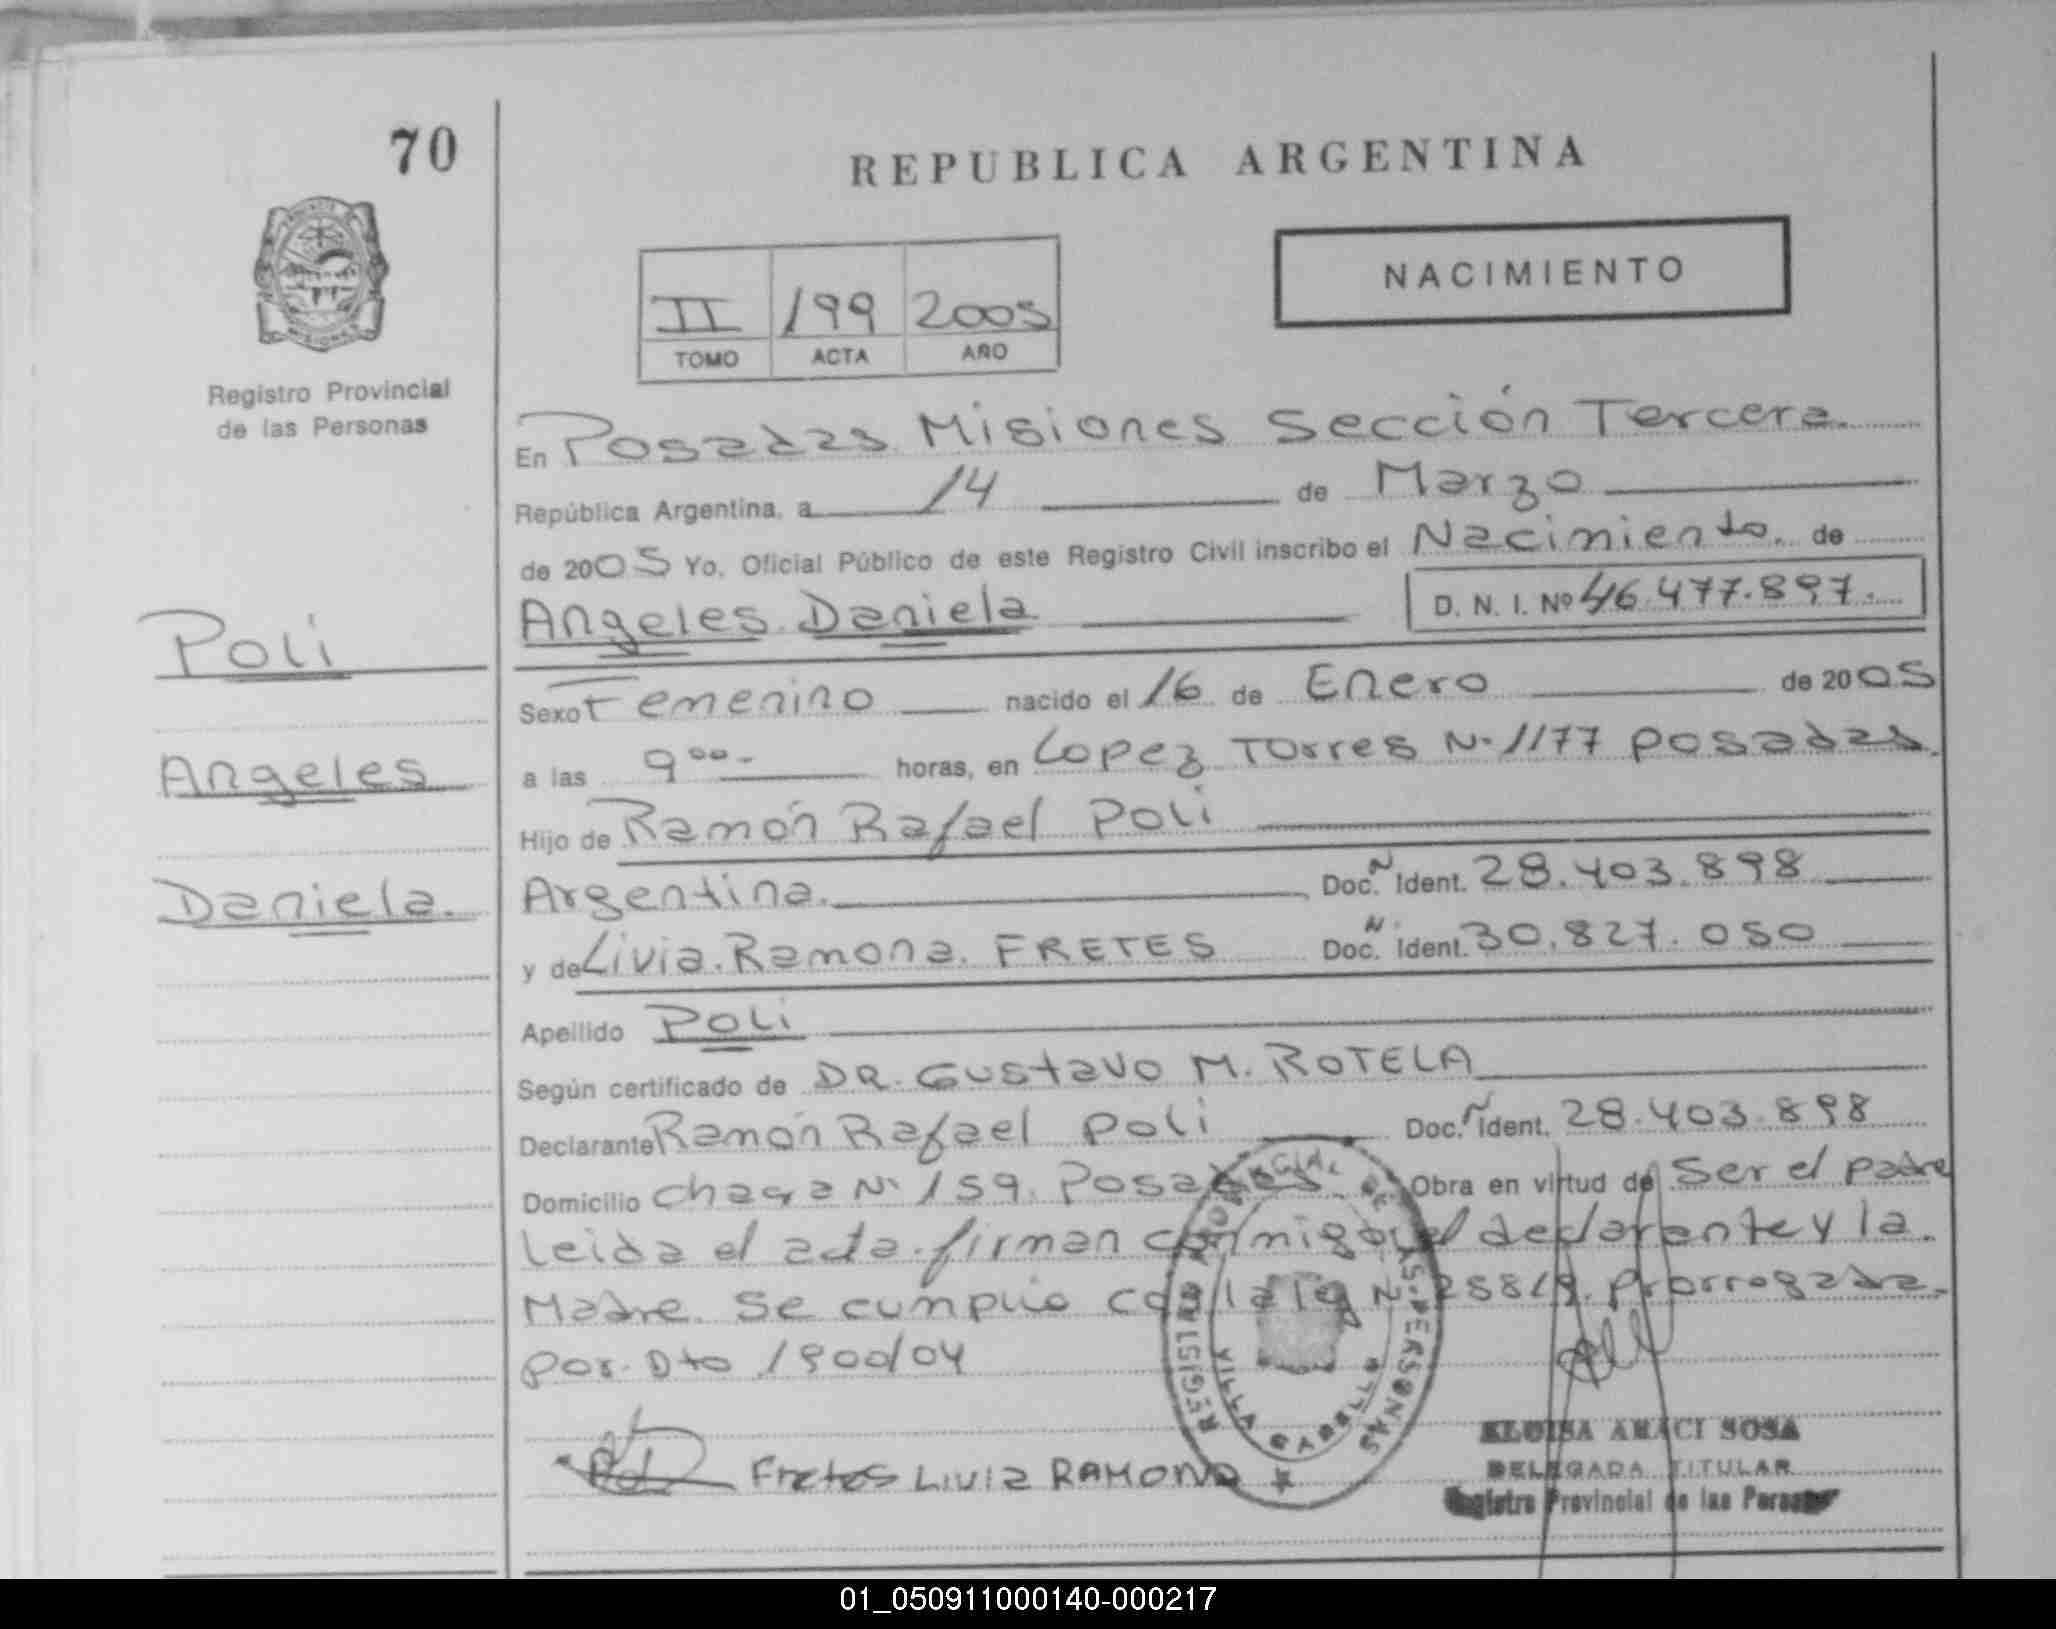 70
REPUBLICA ARGENTINA
NACIMIENTO
II 199 2005
TOMO ACTA AÑO
Registro Provincial
de las Personas
En Posadas Misiones Sección Tercera.
República Argentina, a 14 de Marzo
de 2005 Yo, Oficial Público de este Registro Civil inscribo el Nacimiento de
Angeles Daniela D. N. I. Nº 46.477.897.
Poli
Sexo Femenino nacido el 16 de Enero de 2005
Angeles
a las 9 00- horas, en Lopez Torres Nº 1177 Posadas.
Hijo de Ramón Rafael Poli
Daniela.
Argentina. Doc. Ident. 28.403.898
y de Livia Ramona FRETES Doc. Ident. 30.827.050
Apellido Poli
Según certificado de DR. Gustavo M. ROTELA
Declarante Ramón Rafael Poli Doc. Ident. 28.403.898
Domicilio Chacra Nº 159. Posadas Obra en virtud de ser el padre
Leida el acta firman conmigo el declarante y la
Madre. Se cumplio con la ley Nº 25819. prorrogada
por Dto 1900/04
REGISTRO PROVINCIAL DE LAS PERSONAS
VILLA CABELLO
Fretes LIVIA RAMONA
ELOISA ARACI SOSA
DELEGADA TITULAR
Registro Provincial de las Personas
01_050911000140-000217